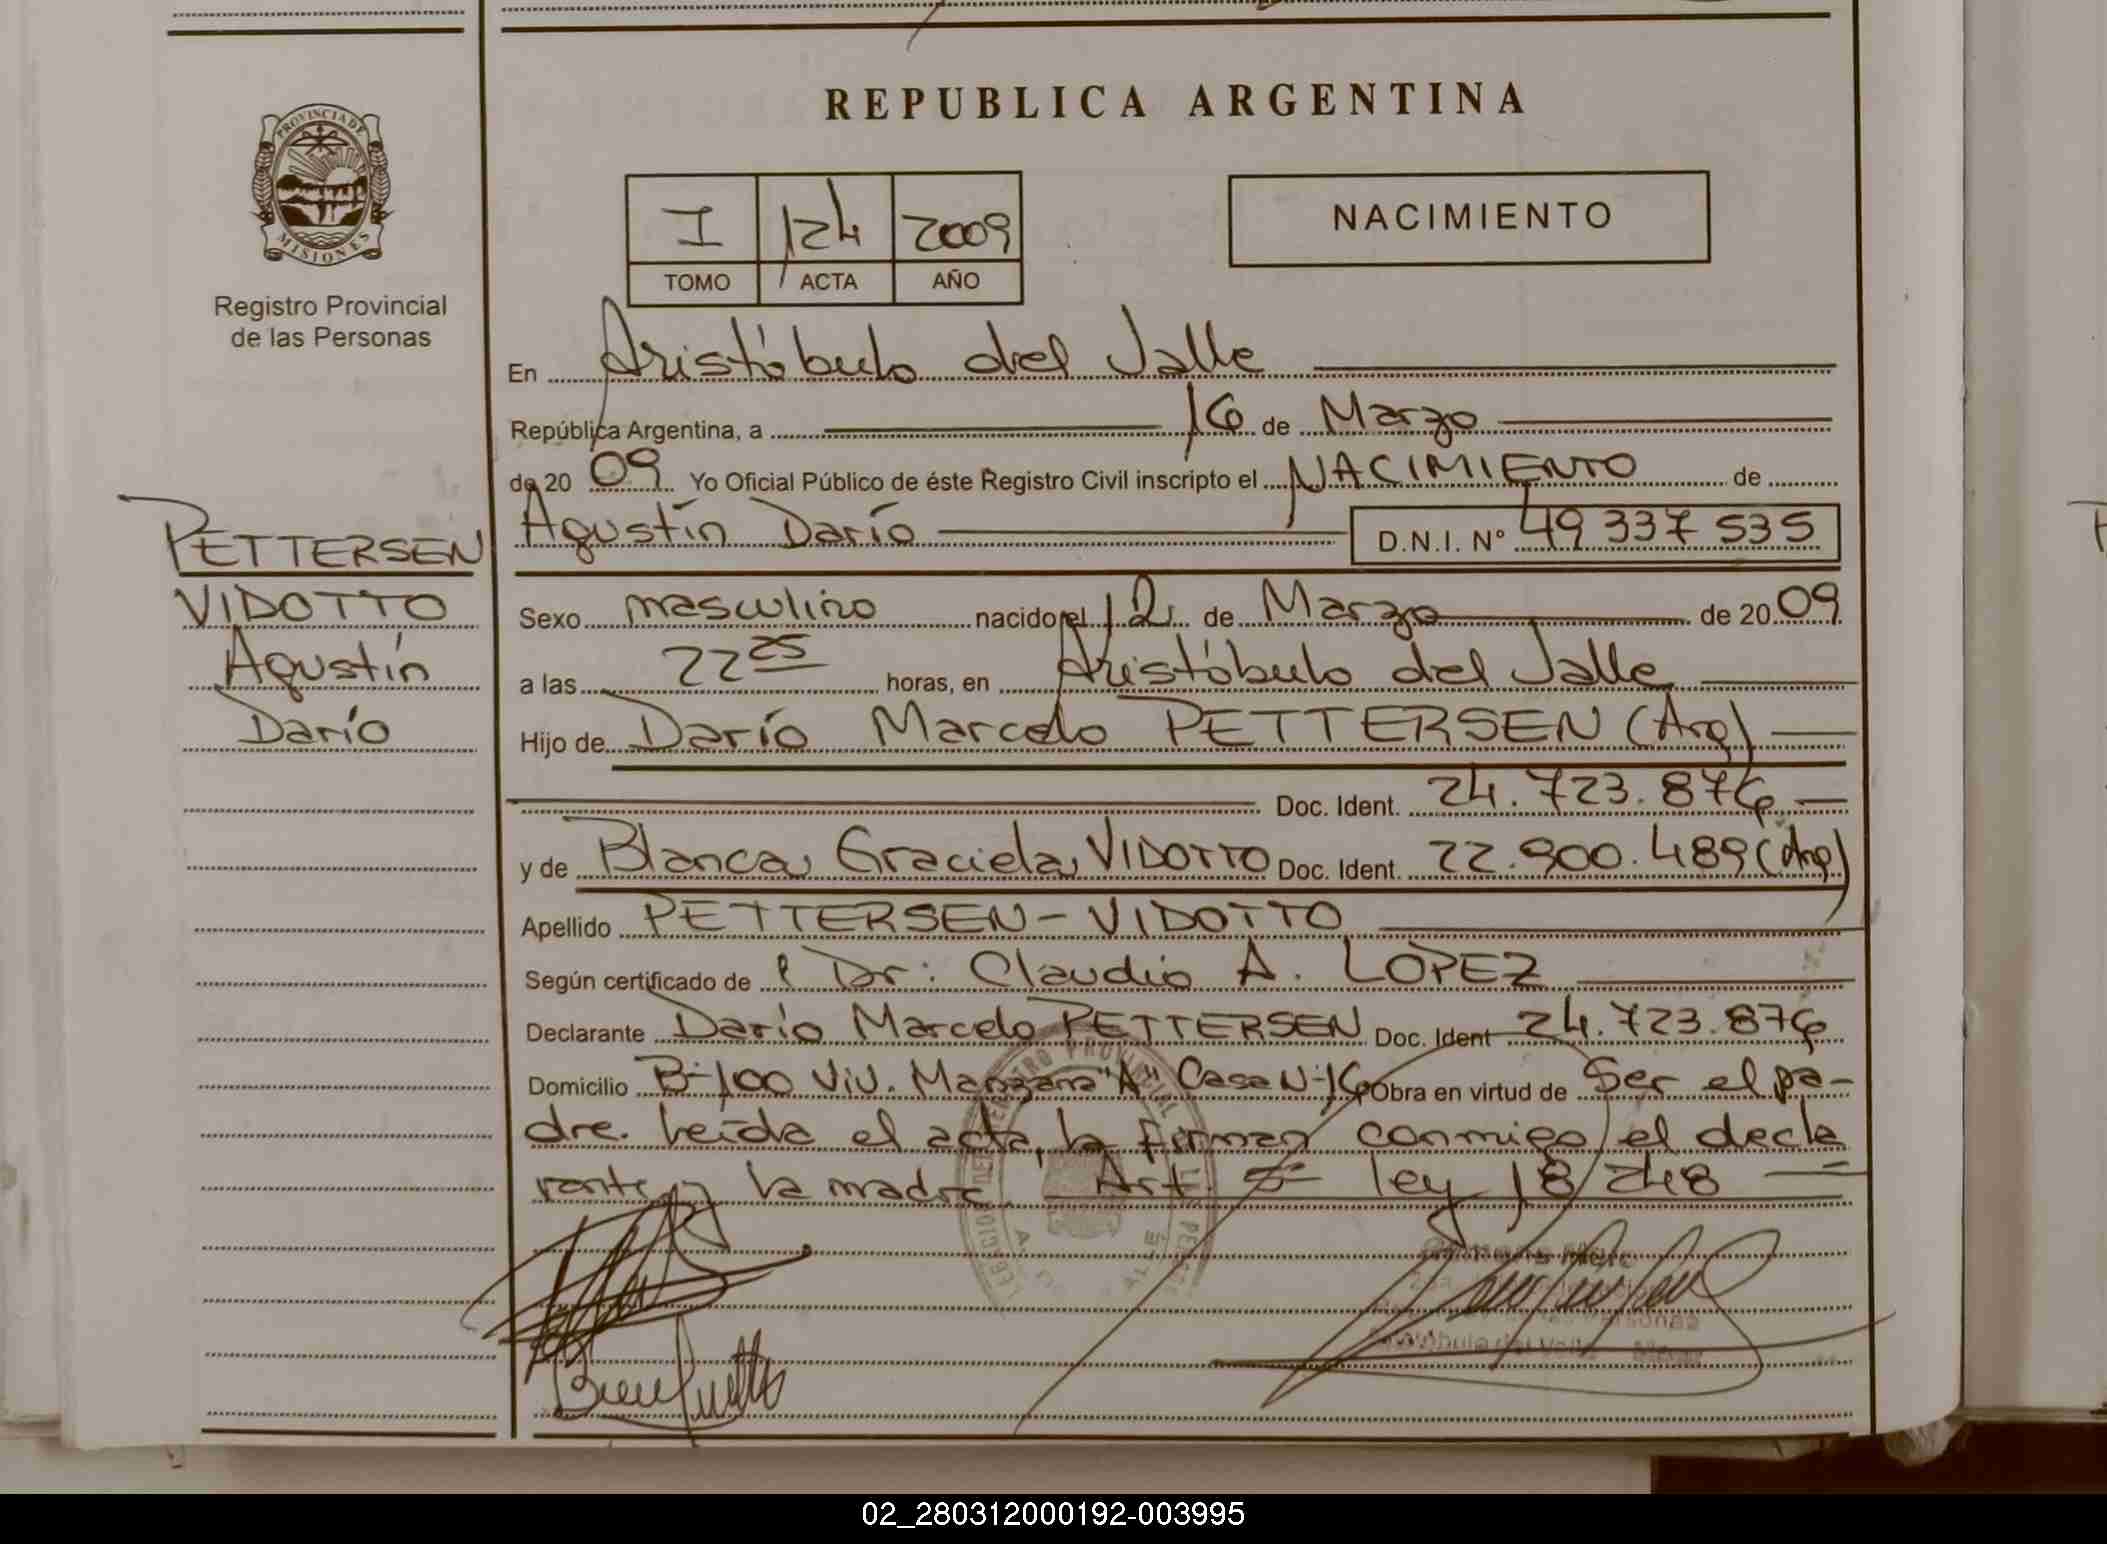 REPUBLICA ARGENTINA
PROVINCIA DE MISIONES
Registro Provincial
de las Personas
I 124 2009
TOMO ACTA AÑO
NACIMIENTO
En Aristóbulo del Valle
República Argentina, a 16 de Marzo
de 20 09 Yo Oficial Público de éste Registro Civil inscripto el NACIMIENTO de
Agustín Darío D.N.I. N° 49 337 535
PETTERSEN
VIDOTTO
Agustín
Darío
Sexo masculino nacido el 12 de Marzo de 20 09
a las 22 25 horas, en Aristóbulo del Valle
Hijo de Darío Marcelo PETTERSEN (Arg)
Doc. Ident. 24.723.876
y de Blanca Graciela VIDOTTO Doc. Ident. 22.900.489 (Arg)
Apellido PETTERSEN - VIDOTTO
Según certificado de l Dr: Claudio A. LOPEZ
Declarante Darío Marcelo PETTERSEN Doc. Ident 24.723.876
Domicilio B- 100 Viv. Manzana "A" Casa N- 16 Obra en virtud de Ser el pa-
dre. Leída el acta, la firman conmigo el decla
rante y la madre. Art. 5= ley 18 248
02_280312000192-003995